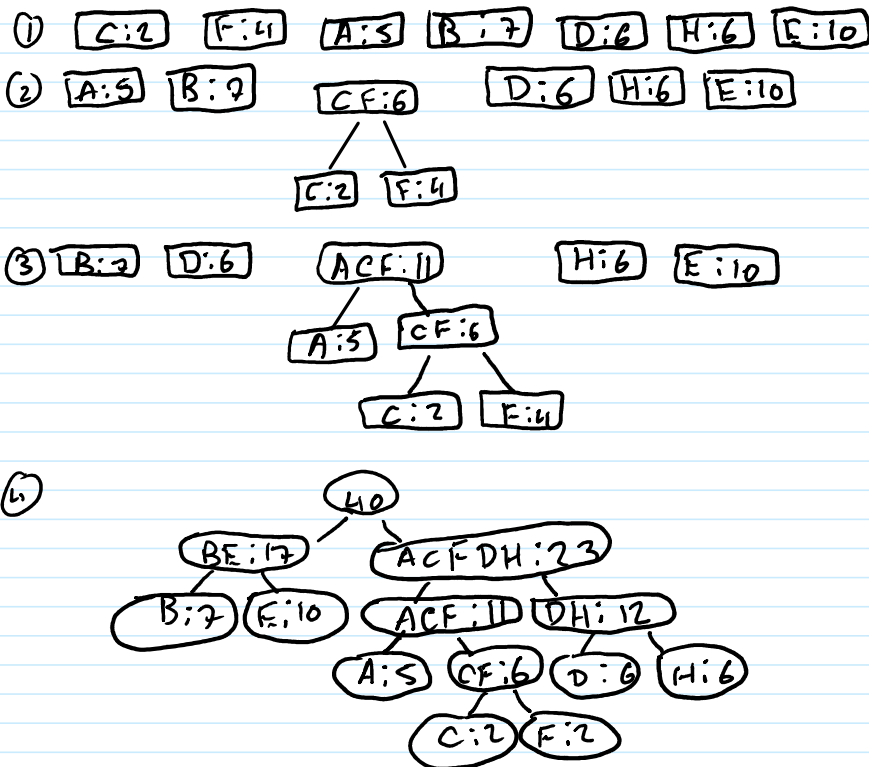 ① C:2 F:4 A:5 B:7 D:6 H:6 E:10
② A:5 B:7 CF:6 D:6 H:6 E:10
C:2 F:4
③ B:7 D:6 ACF:11 H:6 E:10
A:5 CF:6
C:2 F:4
④ 40
BE:17 ACFDH:23
B:7 E:10 ACF:11 DH:12
A:5 CF:6 D:6 H:6
C:2 F:2